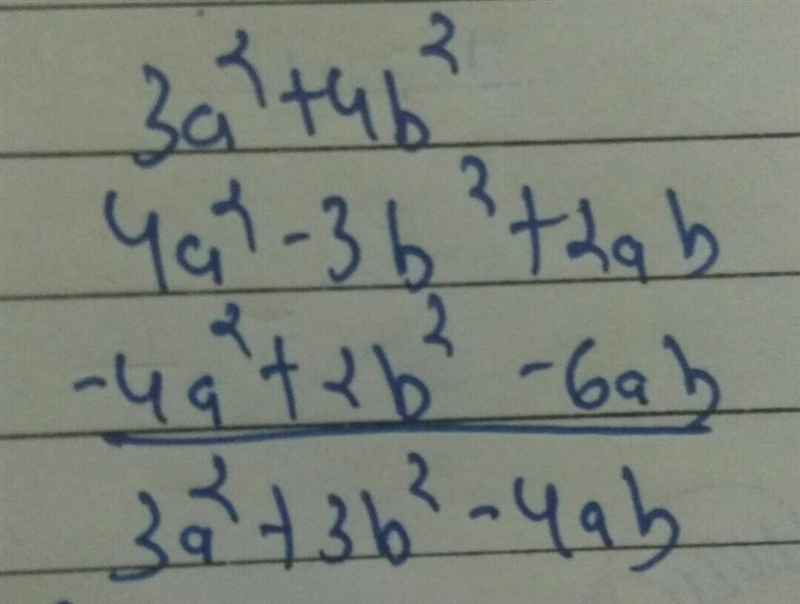 3a²+4b²
4a²-3b²+2ab
-4a²+2b² -6ab
3a²+3b²-4ab